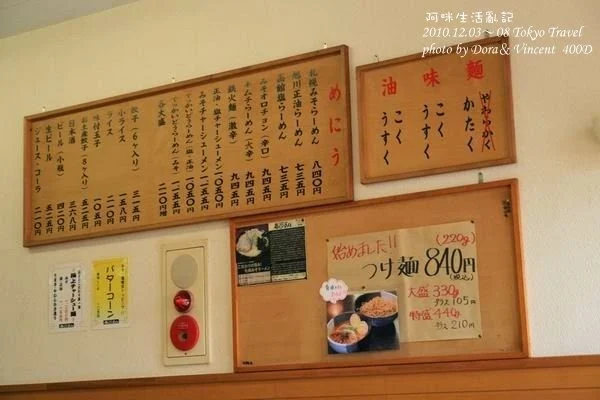 阿咪生活亂記
2010.12.03 ~ 08 Tokyo Travel
photo by Dora & Vincent 400D
めにう
札幌みそらーめん 八四〇
旭川正油らーめん 七三五
函館塩らーめん 七三五
みそオロチョン（辛口） 九四五
キムチらーめん（大辛） 九四五
鉄火麺（激辛） 九四五
正油・塩チャーシューメン 一〇五〇
みそチャーシューメン 一一五五
てっかいどうらーめん（塩・正油） 一〇五〇
てっかいどうらーめん（みそ） 一一五五
各大盛 二一〇増
餃子（6ヶ入り） 三一五
小ライス 一五八
ライス 二一〇
味付玉子 一〇五
お土産餃子（8ヶ入り） 五二五
日本酒 四二〇
ビール（小瓶） 四二〇
生ビール 五二五
ジュース・コーラ 二一〇
麺 やわらかく かたく
味 こく うすく
油 こく うすく
始めました!!
(220g)
つけ麺 840円
(税込)
大盛 330g
プラス 105円
特盛 440g
プラス 210円
バターコーン
極上チャーシュー麺